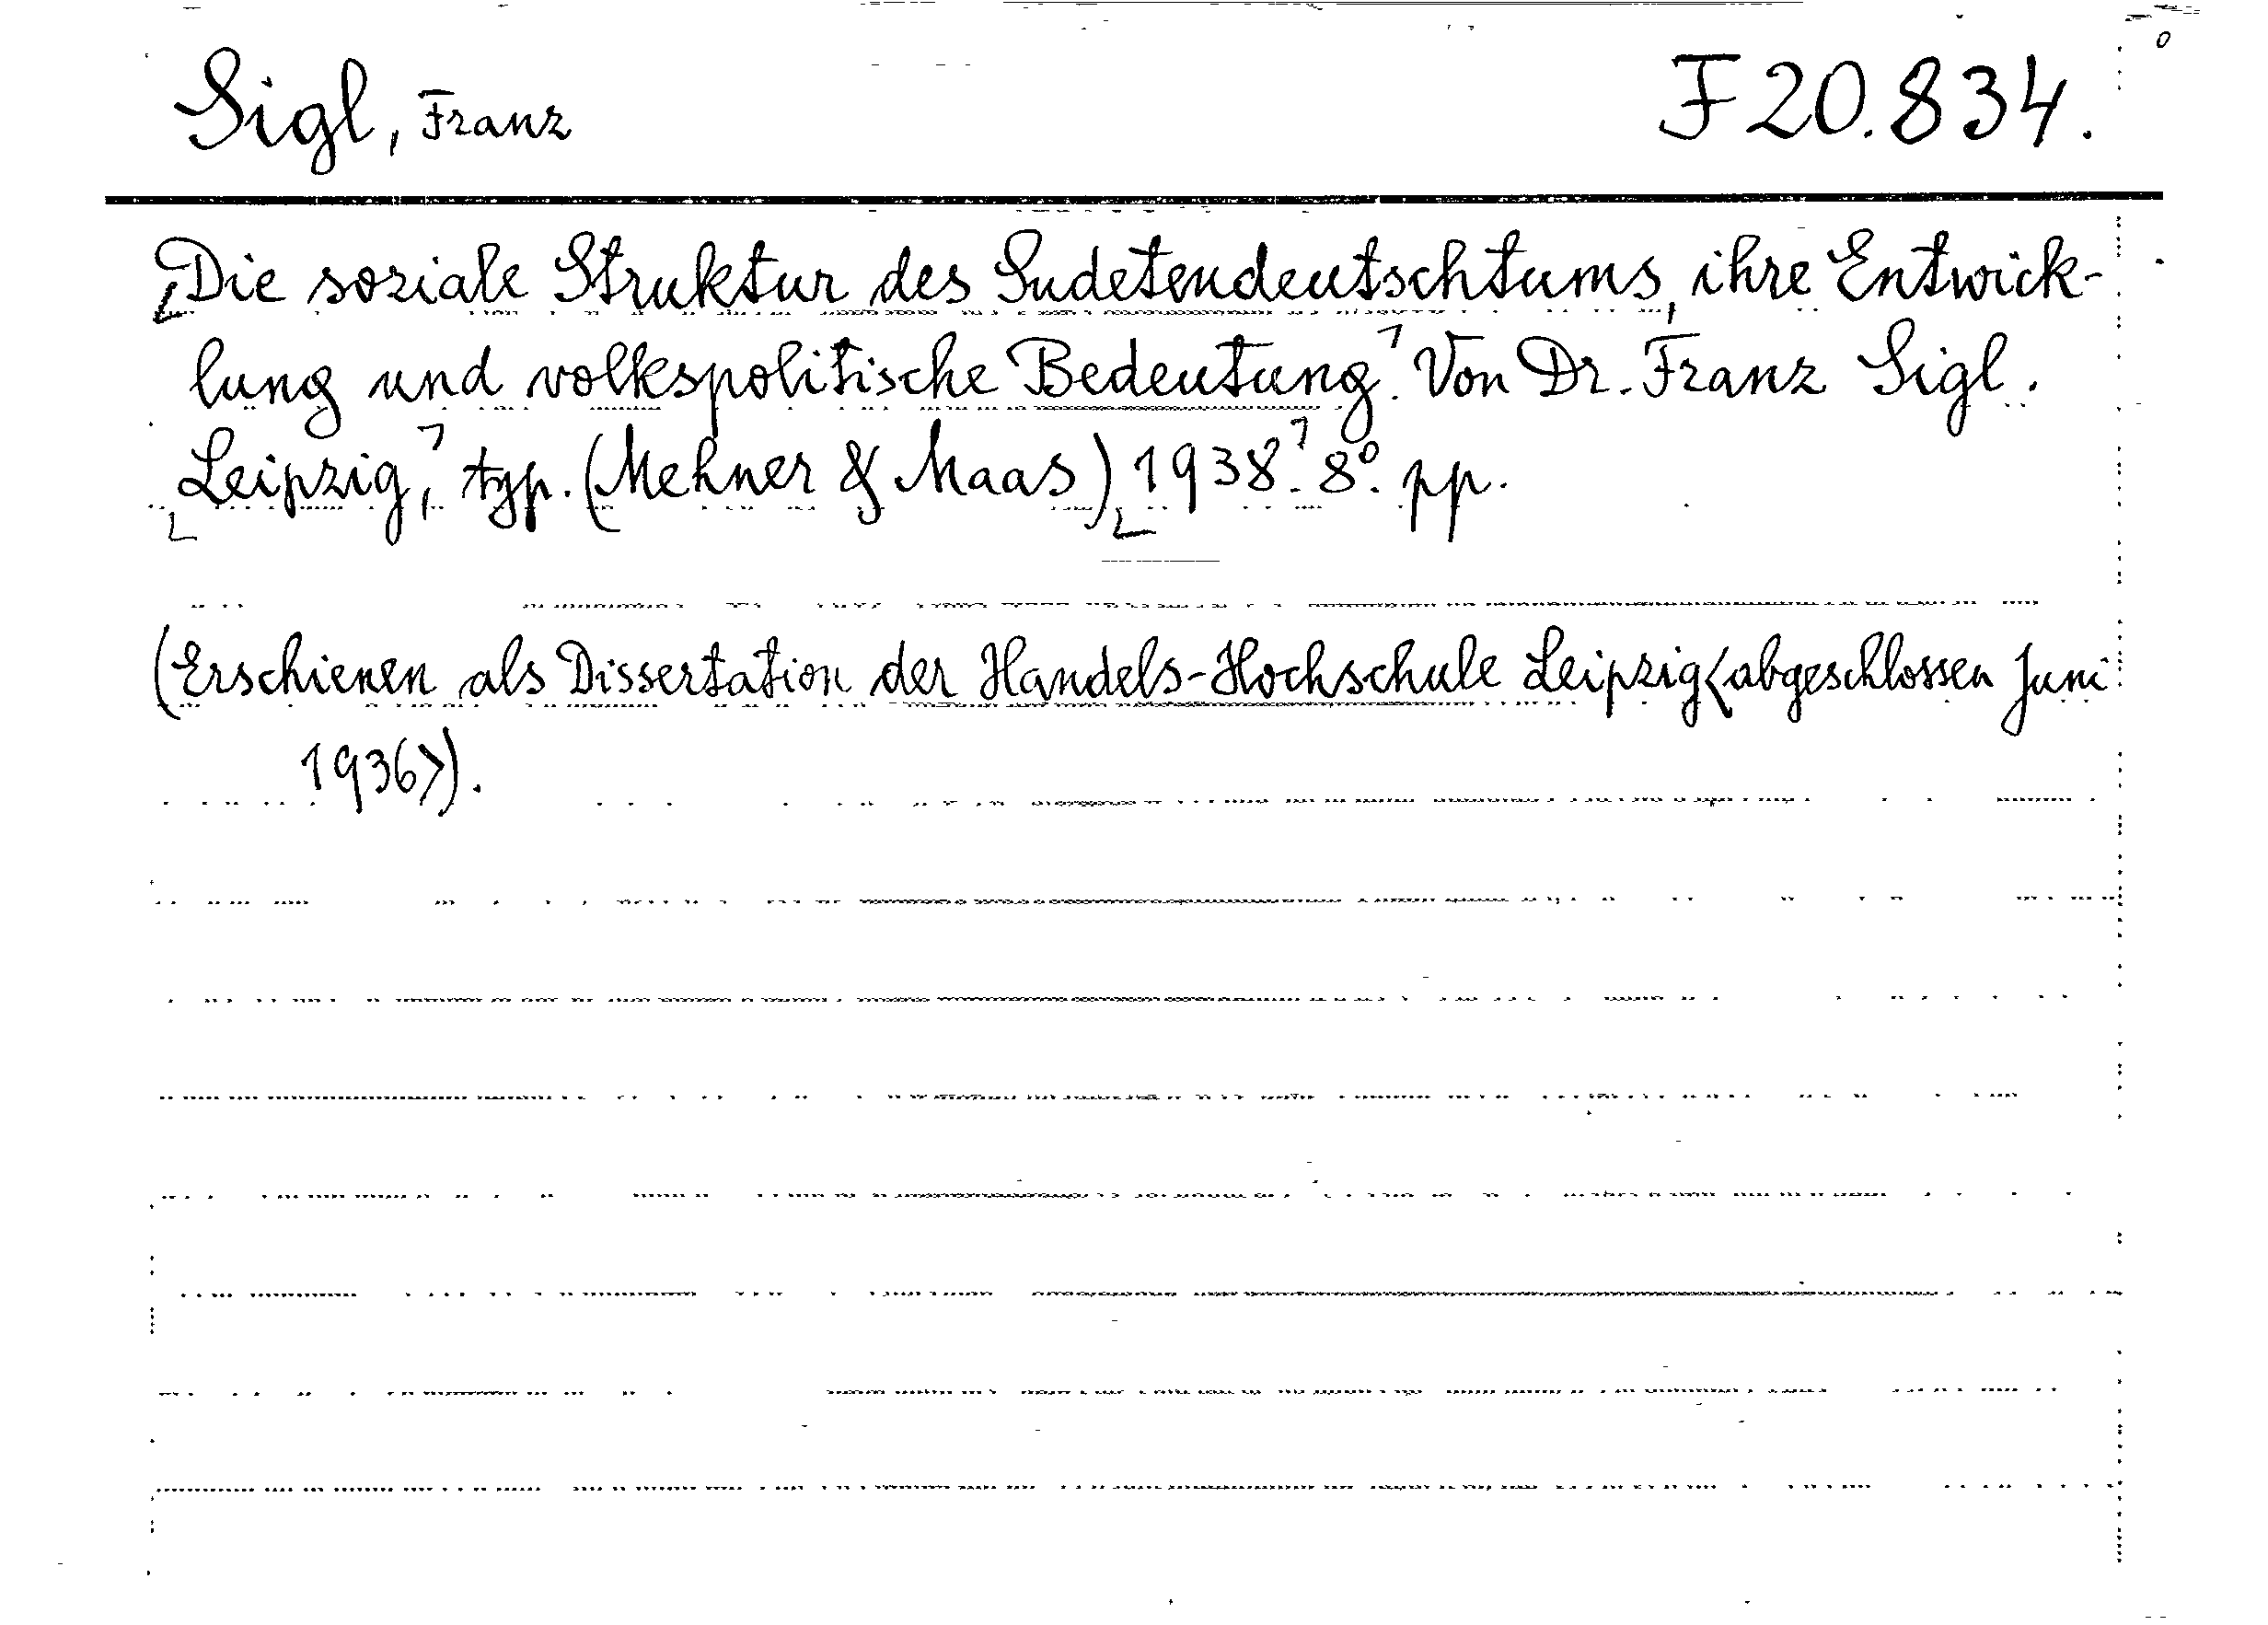 Sigl, Franz F 20.834.
Die soziale Struktur des Sudetendeutschtums, ihre Entwick-
lung und volkspolitische Bedeutung. Von Dr. Franz Sigl.
Leipzig, typ. (Mehner & Maas) 1938. 8º. pp.
(Erschienen als Dissertation der Handels-Hochschule Leipzig <abgeschlossen Juni
1936>).